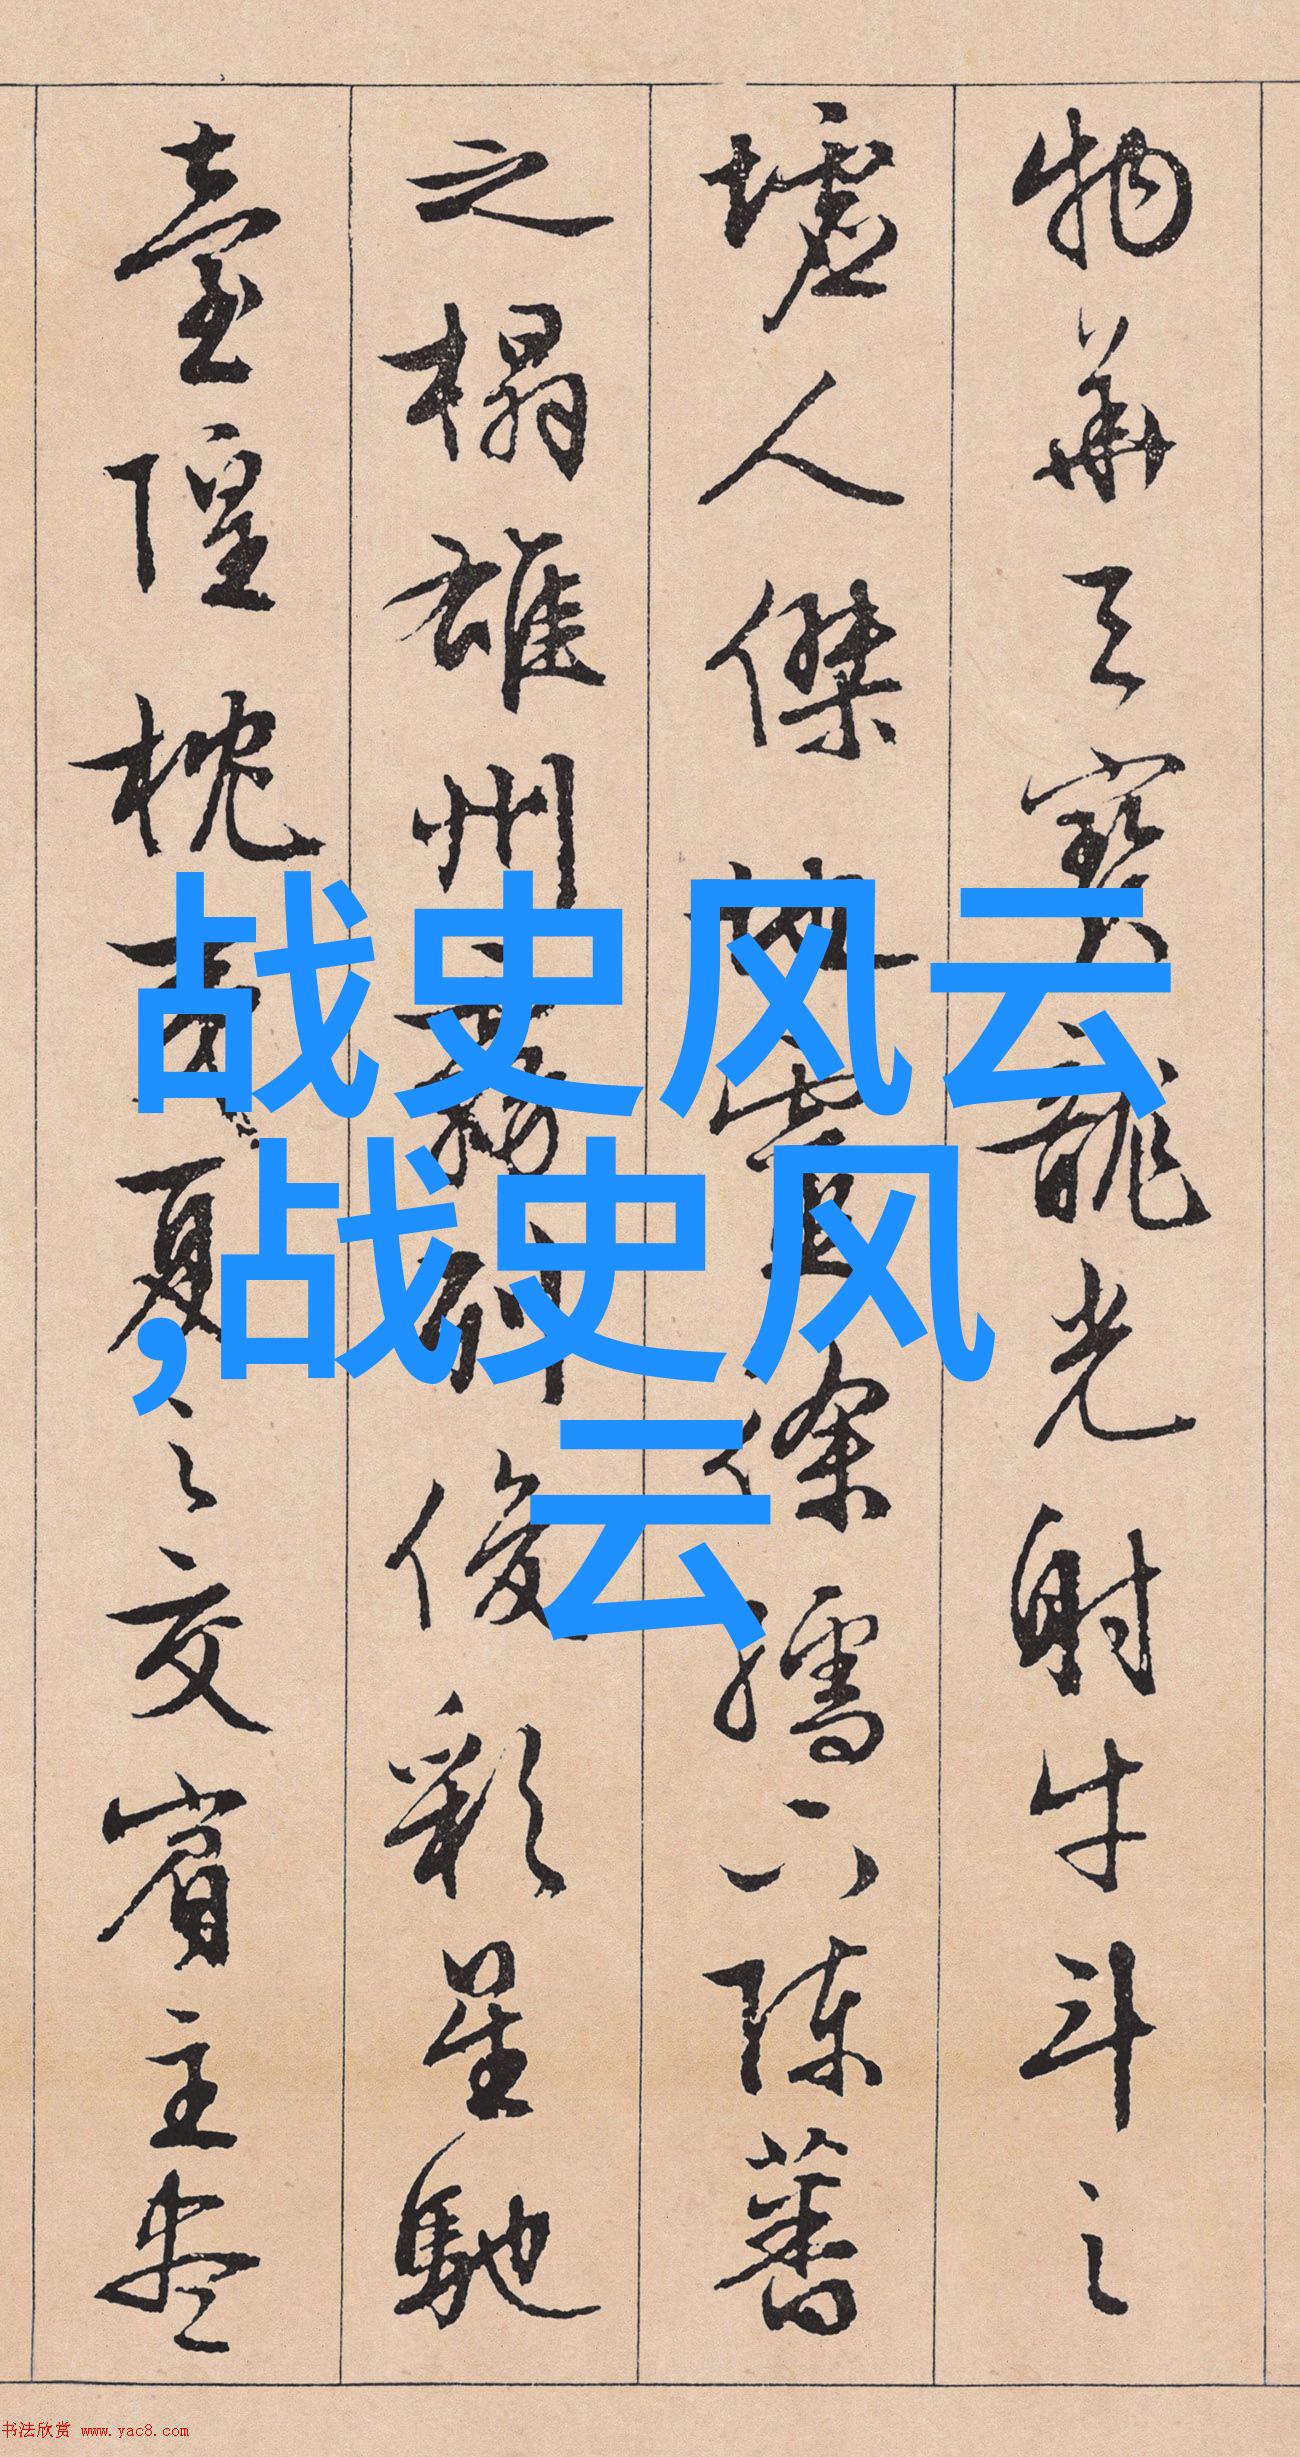 物華天寶龍光射牛斗之
墟人傑地靈徐孺下陳蕃
之榻雄州霧列俊彩星馳
臺隍枕夷夏之交賓主盡
战史风云
,战史风
云
书法欣赏 www.yac8.com